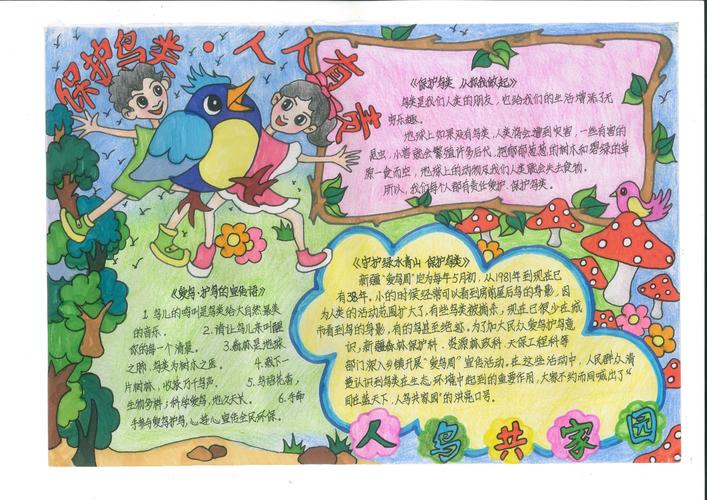 保护鸟类·人人有责
《保护鸟类 从我做起》
鸟类是我们人类的朋友，也给我们的生活增添了无
穷乐趣。
地球上如果没有鸟类，人类将会遭到灾害，一些有害的
昆虫，小害就会繁殖许多后代，把郁郁葱葱的树木和碧绿的草
原一食而空，地球上的动物及我们人类就会失去食物。
所以，我们每个人都有责任爱护、保护鸟类。
《守护绿水青山 保护鸟类》
新疆“爱鸟周”定为每年5月初，从1981年到现在已
有38年。小的时候经常可以看到房前屋后鸟的身影，因
为人类的活动范围扩大了，有些鸟类被捕杀，现在已很少在城
市看到鸟的身影，有的鸟甚至绝迹。为了加大民众爱鸟护鸟意
识，新疆森林保护科、资源林政科、天保工程科等
部门深入乡镇开展“爱鸟周”宣传活动。在这些活动中，人民群众清
楚认识到鸟类在生态环境中起到的重要作用，大家不约而同喊出了“
同在蓝天下，人鸟共家园”的洪亮口号。
《爱鸟·护鸟的宣传语》
1. 鸟儿的鸣叫是鸟类给大自然最美
的音乐。 2. 请让鸟儿来叫醒
你的每一个清晨。 3. 森林是地球
之肺，鸟类为树木之医。 4. 栽下一
片树林，收获万千鸟声。 5. 鸟语花香，
生物多样；科学爱鸟，地久天长。 6. 手牵
手参与爱鸟护鸟，心连心宣传全民环保。
人鸟共家园